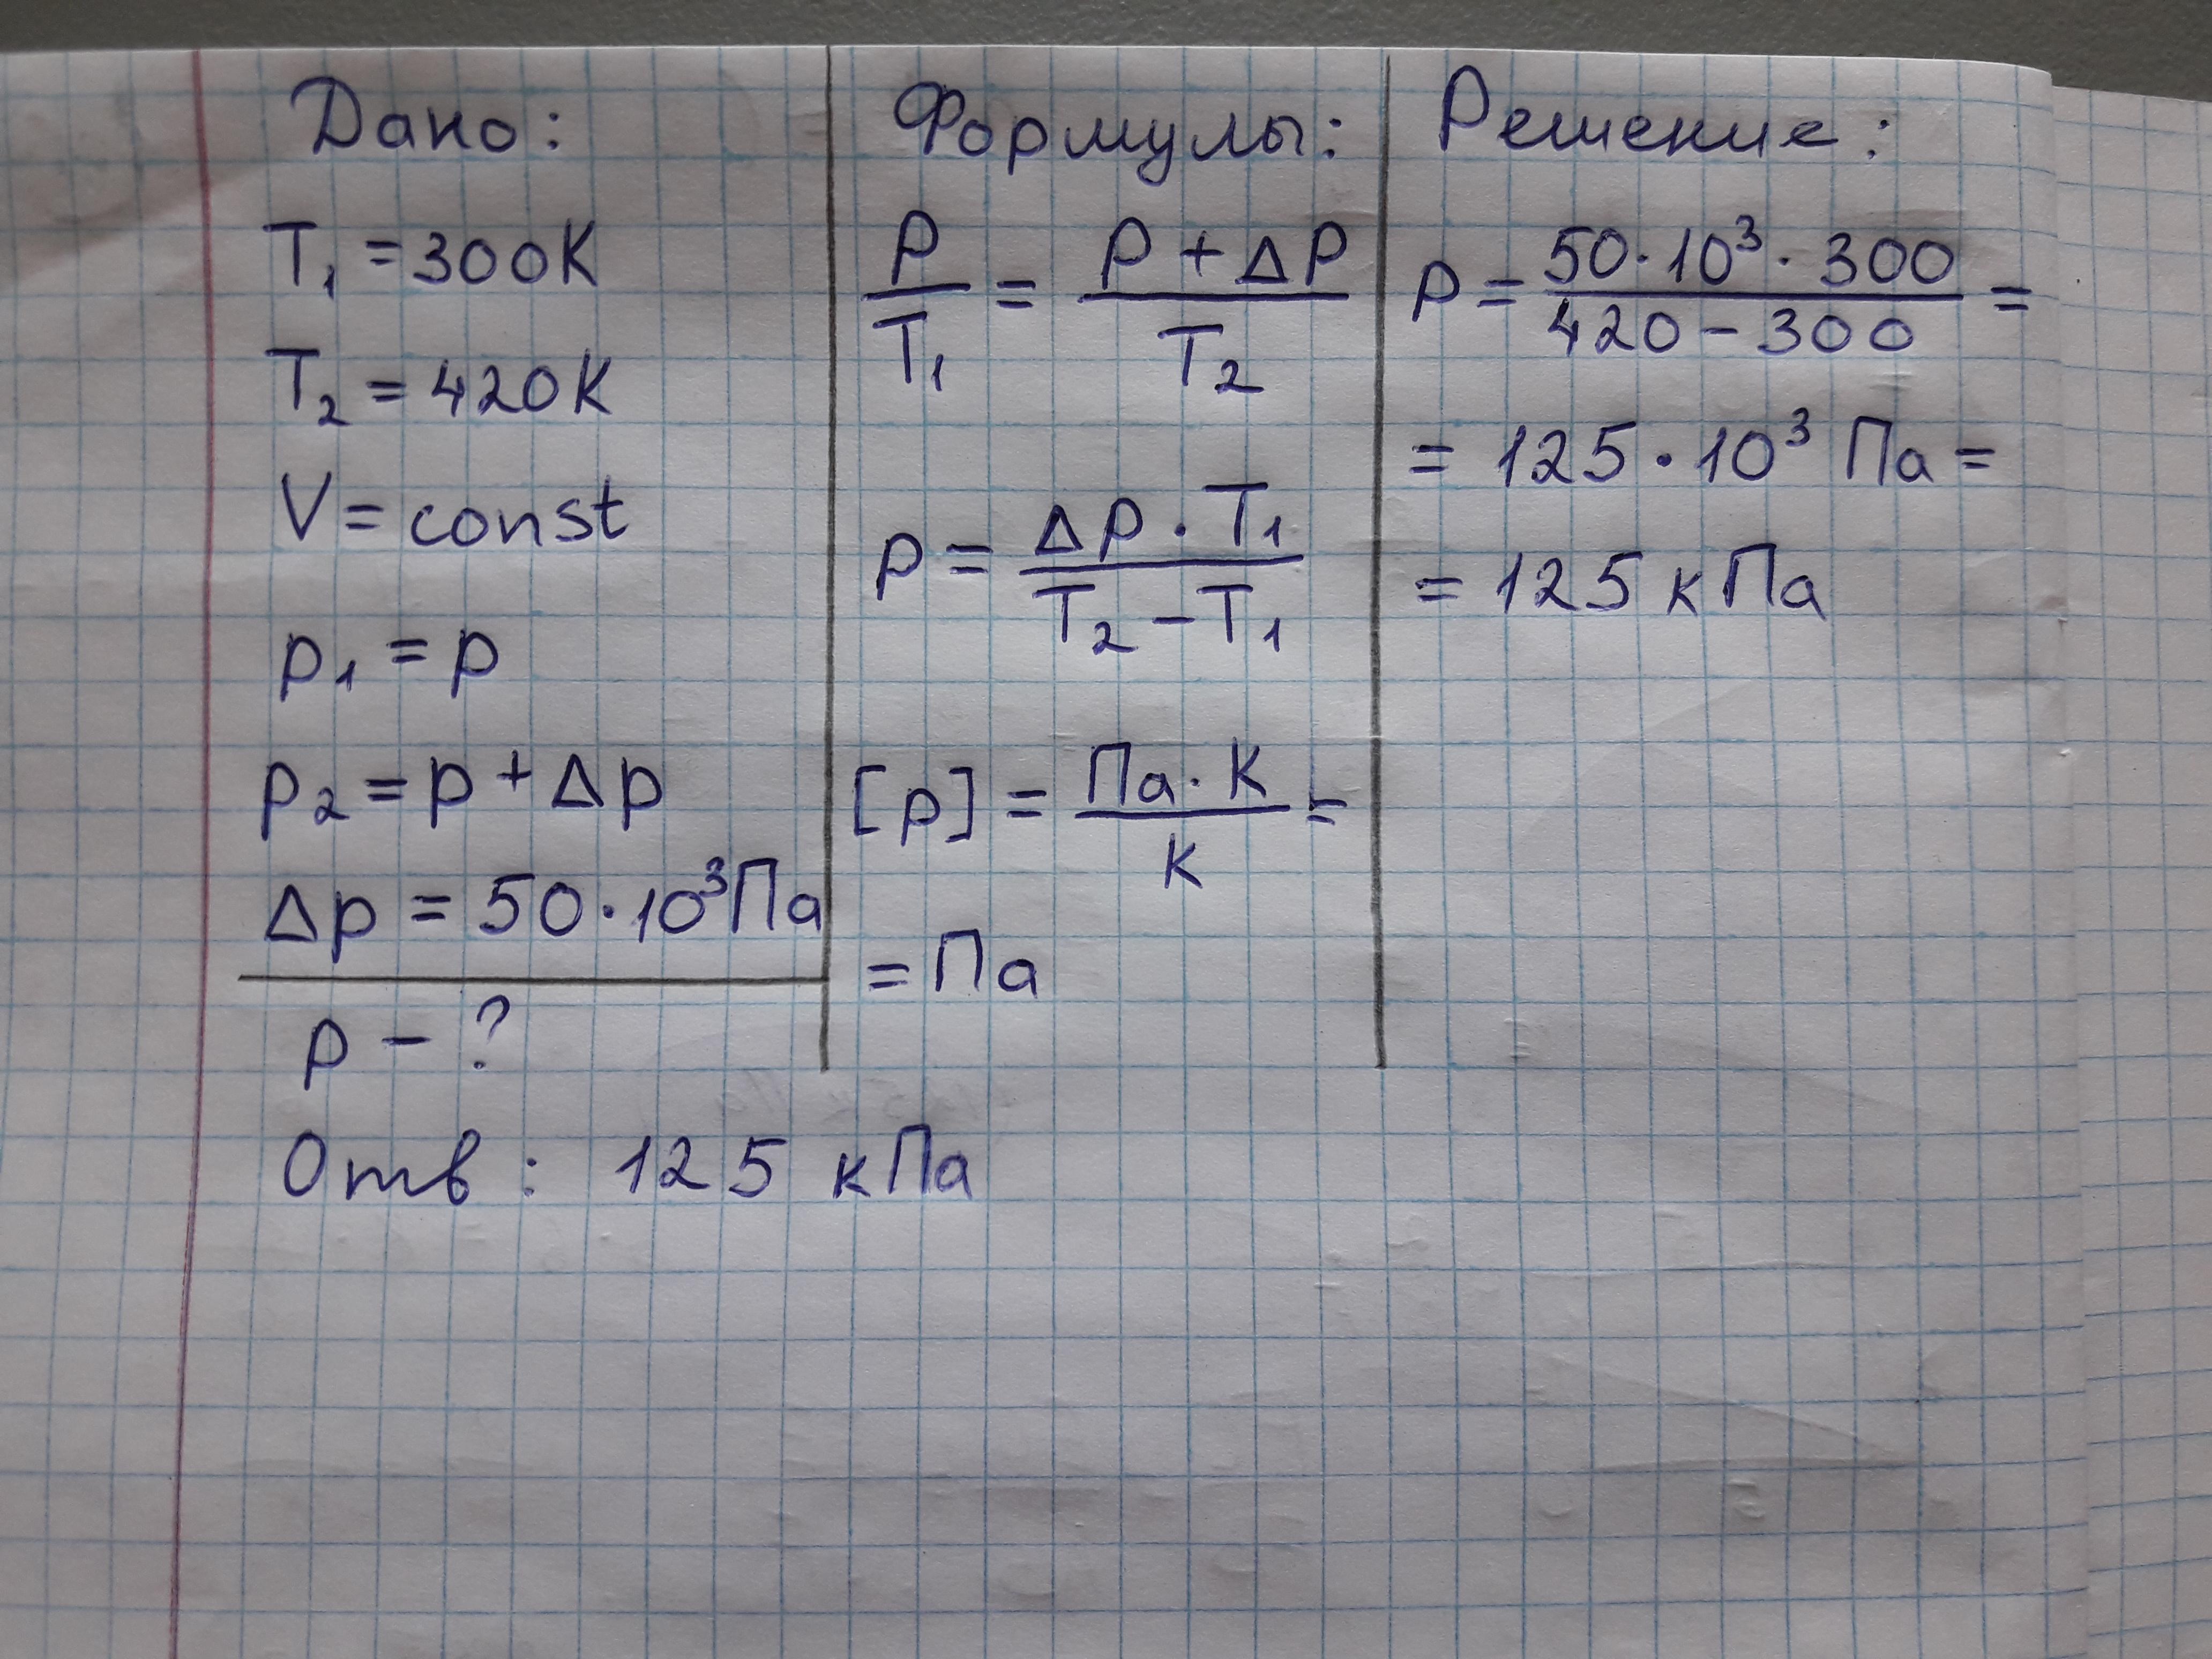 Дано:
T₁ = 300K
T₂ = 420K
V = const
p₁ = p
p₂ = p + Δp
Δp = 50·10³Па
p - ?
Формулы:
P/T₁ = (P + ΔP)/T₂
p = (Δp · T₁)/(T₂ - T₁)
[p] = (Па · К)/К =
= Па
Решение:
P = (50·10³·300)/(420 - 300) =
= 125·10³ Па =
= 125 кПа
Отв: 125 кПа